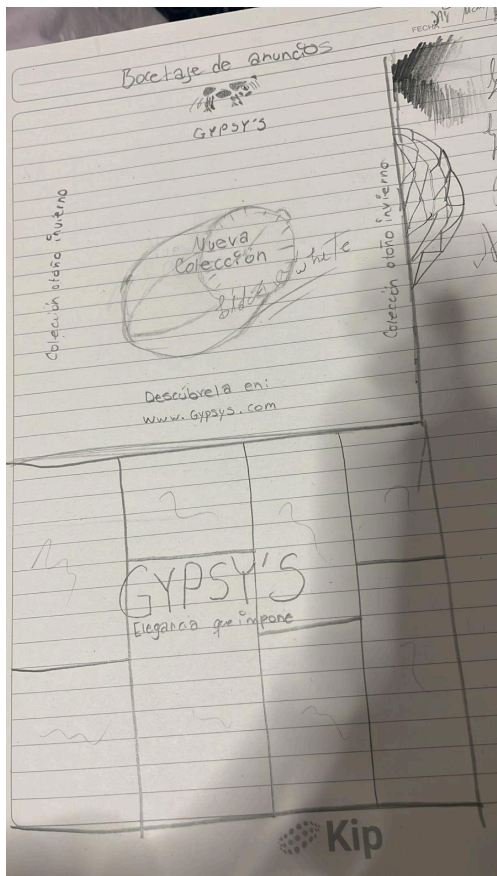 FECHA
Bocetaje de anuncios
GYPSY'S
Colección otoño invierno
Nueva
Colección
white
Colección otoño invierno
Descúbrela en:
www.Gypsys.com
GYPSY'S
Elegancia que impone
Kip